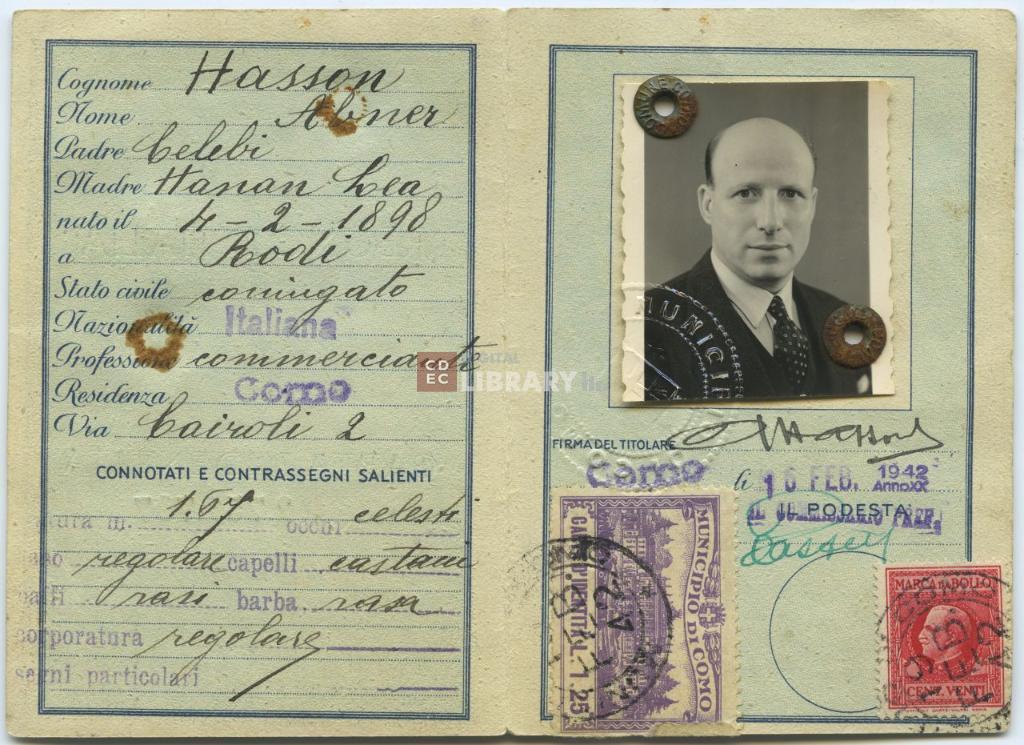 Cognome Hasson
Nome Abner
Padre Celebi
Madre Hanan Lea
nato il 4-2-1898
a Rodi
Stato civile coniugato
Nazionalità Italiana
Professione commerciante
Residenza Como
Via Cairoli 2
CONNOTATI E CONTRASSEGNI SALIENTI
statura m. 1.67 occhi celesti
naso regolare capelli castani
baffi rasi barba rasa
corporatura regolare
segni particolari
CDEC DIGITAL LIBRARY
MUNICIP
FIRMA DEL TITOLARE AHasson
Como li 16 FEB. 1942 Anno XX
IL PODESTA
IL COMMISSARIO PREF.
MUNICIPIO DI COMO
CARTA D'IDENTITÀ L. 1,25
MARCA DA BOLLO
CENT. VENTI